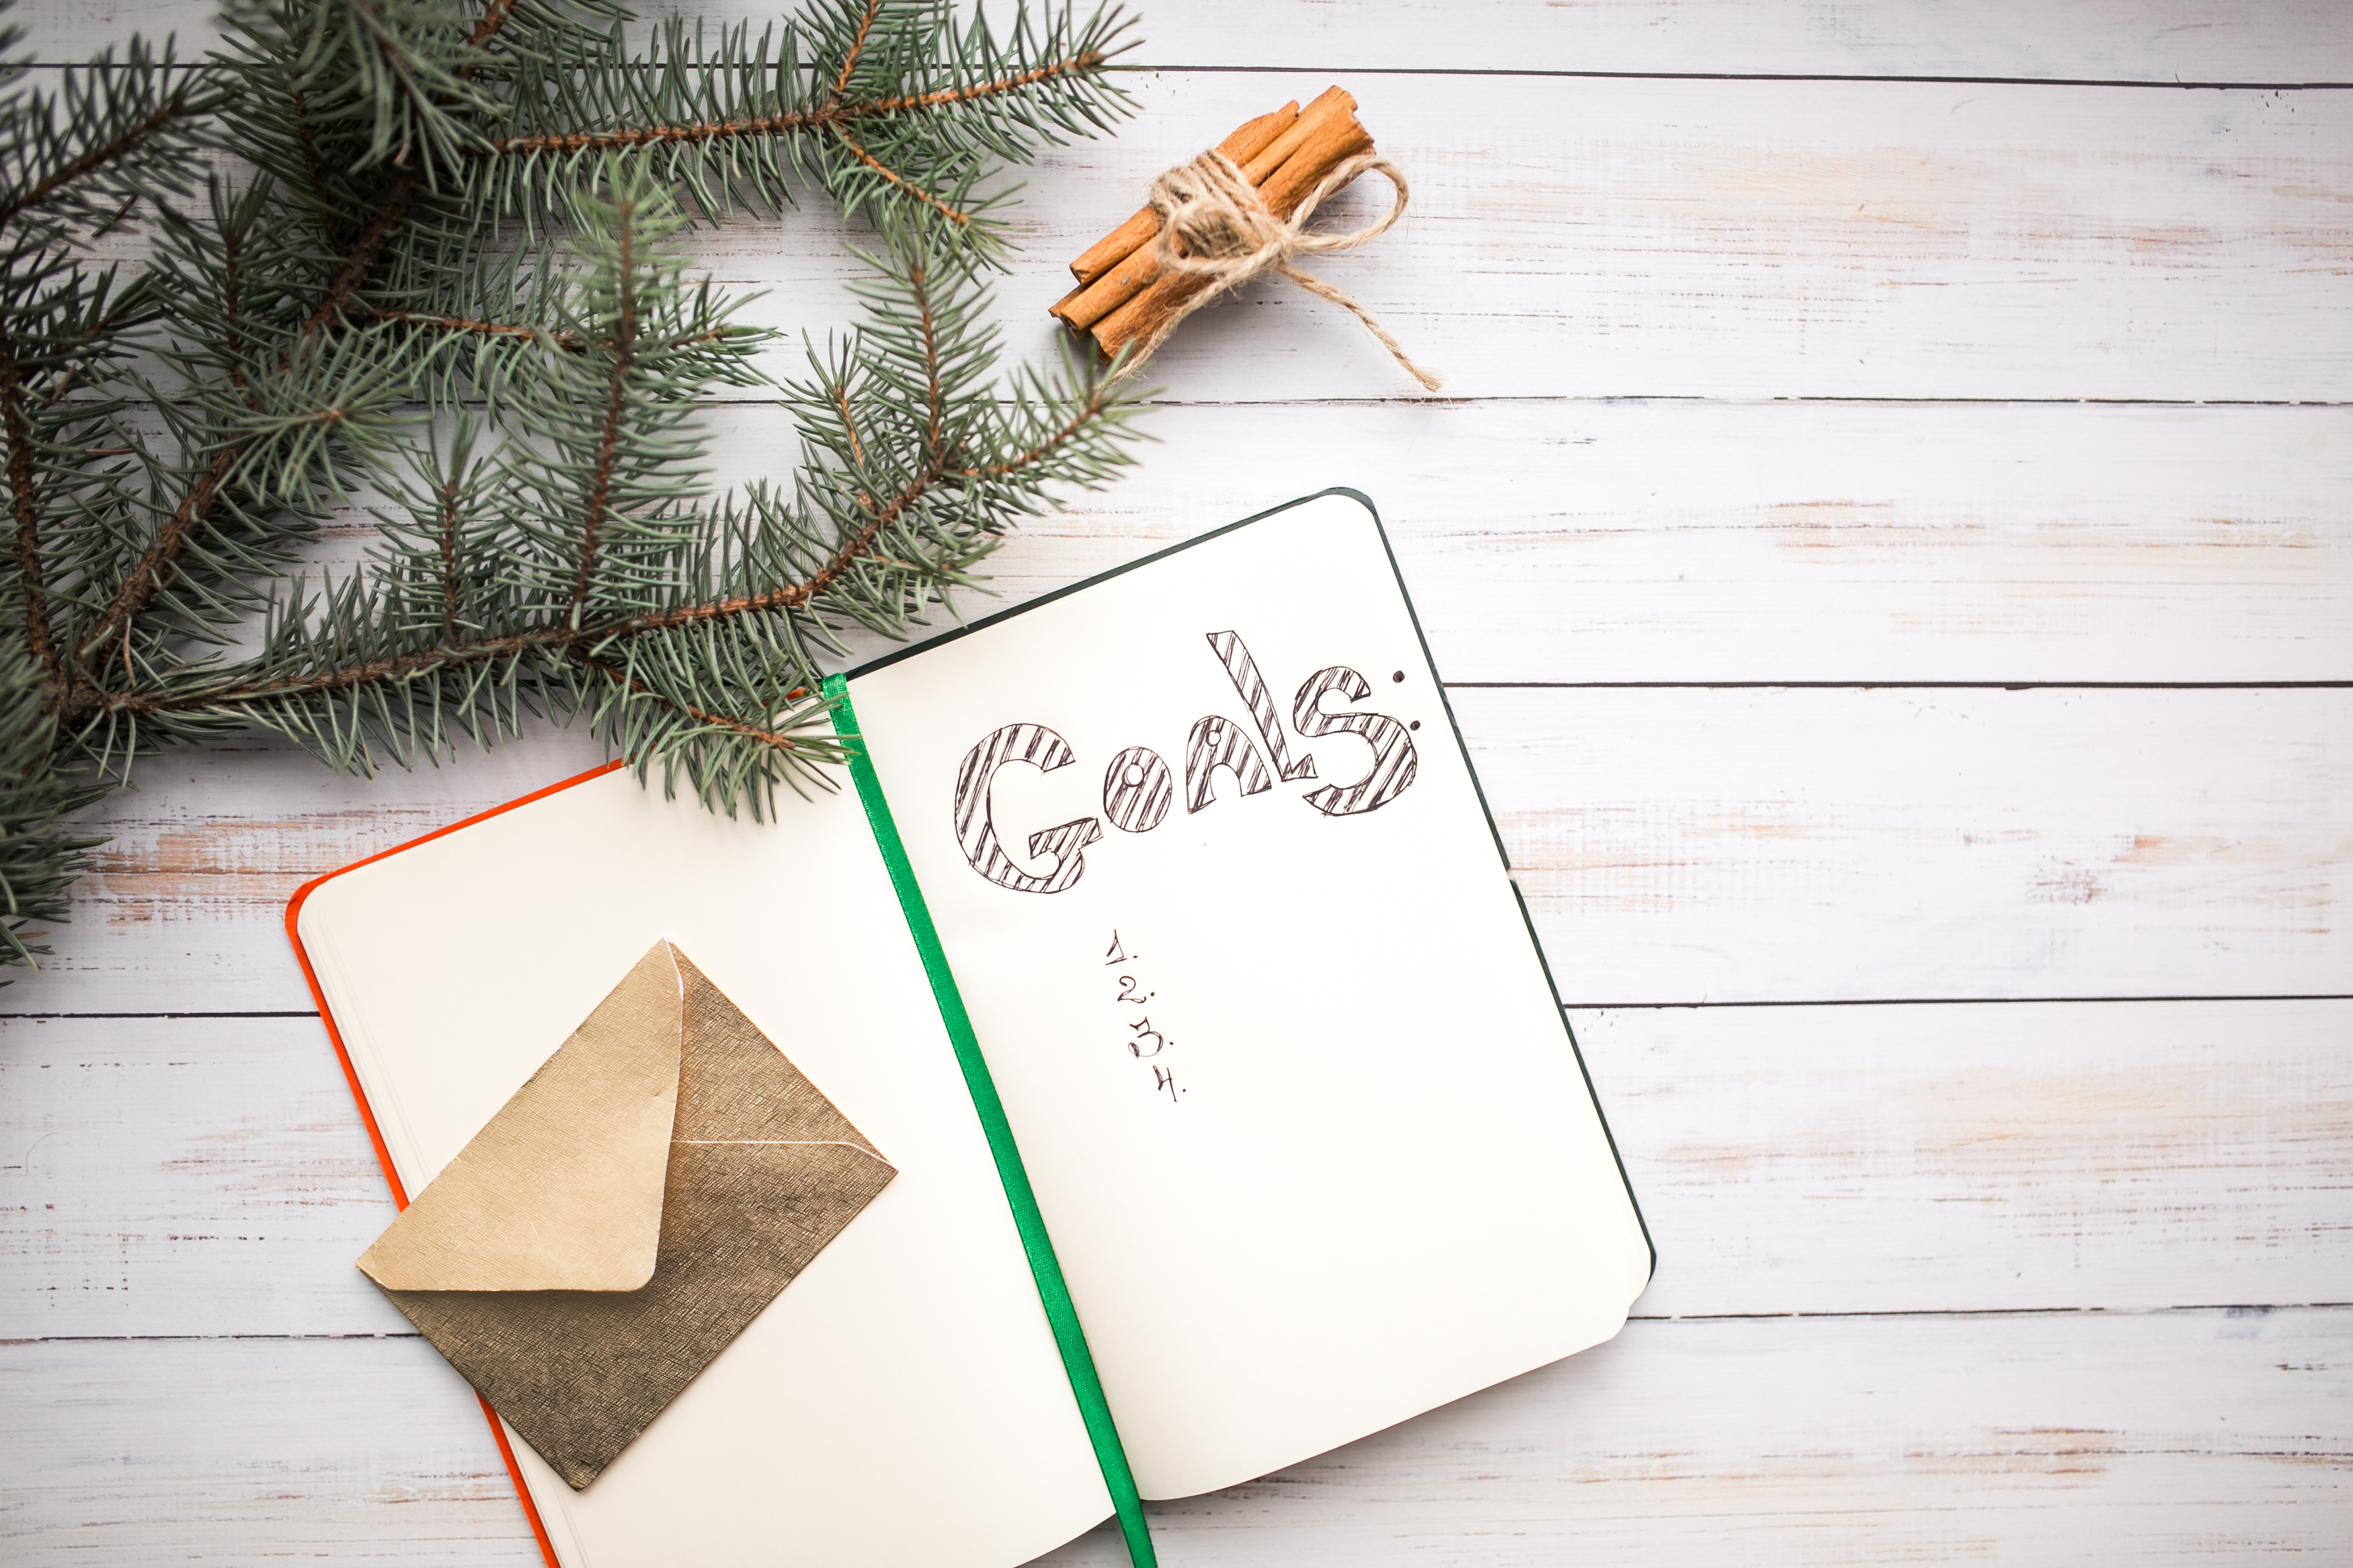 Goals:
1.
2.
3.
4.